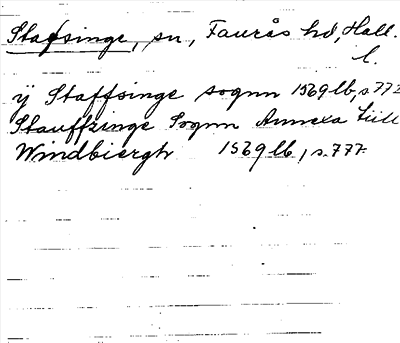 Stafsinge, sn, Faurås hd, Hall.
l.
ÿ Staffsinge sognn 1569 lb, s.772
Stauffzinge Sognn Annexa tiill
Windbiergh 1569 lb, s.777.